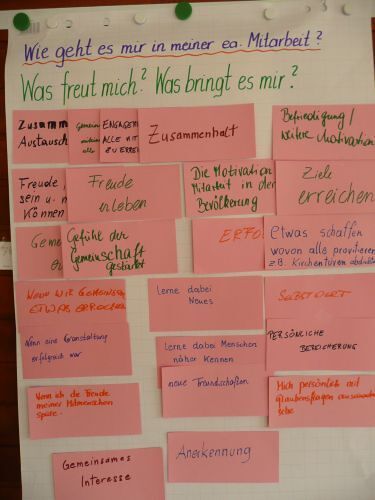 Wie geht es mir in meiner ea. Mitarbeit?
Was freut mich? Was bringt es mir?
Zusamm
Austausch
ENGAGEM
ALLE
ZU ERREI
Zusammenhalt
Befriedigung/
weitere Motivation
Freude,
sein u.
können
Freude
erleben
Die Motivation
Mitarbeit in der
Bevölkerung
Ziele
erreichen
Geme
er
Gefühle der
Gemeinschaft
gestärkt
ERFO
etwas schaffen
wovon alle provitieren
z.B. Kirchenturm
Wenn wir gemeinsam
etwas erreichen
Lerne dabei
Neues
Selbstwert
Wenn eine Veranstaltung
erfolgreich war
Lerne dabei Menschen
näher kennen
PERSÖNLICHE
BEREICHERUNG
Wenn ich die Freude
meiner Mitmenschen
spüre.
neue Freundschaften
Mich persönlich mit
glaubensfragen auseinander
setze
Gemeinsames
Interesse
Anerkennung